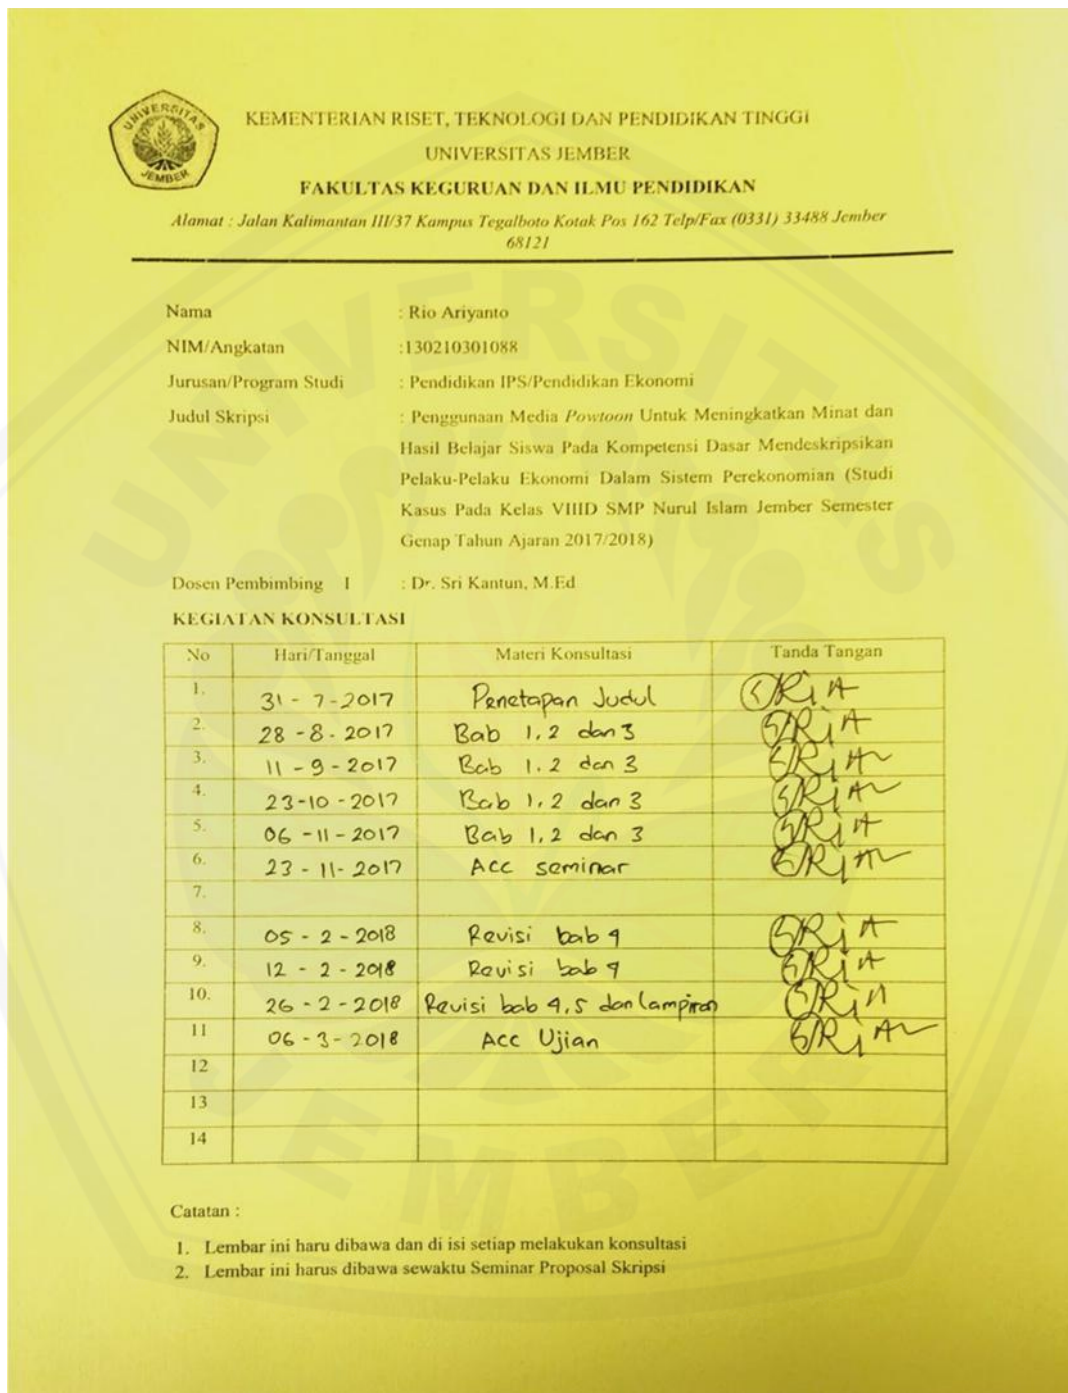 UNIVERSITAS
JEMBER
KEMENTERIAN RISET, TEKNOLOGI DAN PENDIDIKAN TINGGI
UNIVERSITAS JEMBER
FAKULTAS KEGURUAN DAN ILMU PENDIDIKAN
Alamat : Jalan Kalimantan III/37 Kampus Tegalboto Kotak Pos 162 Telp/Fax (0331) 33488 Jember
68121
Nama : Rio Ariyanto
NIM/Angkatan :130210301088
Jurusan/Program Studi : Pendidikan IPS/Pendidikan Ekonomi
Judul Skripsi : Penggunaan Media Powtoon Untuk Meningkatkan Minat dan
Hasil Belajar Siswa Pada Kompetensi Dasar Mendeskripsikan
Pelaku-Pelaku Ekonomi Dalam Sistem Perekonomian (Studi
Kasus Pada Kelas VIIID SMP Nurul Islam Jember Semester
Genap Tahun Ajaran 2017/2018)
Dosen Pembimbing I : Dr. Sri Kantun, M.Ed
KEGIATAN KONSULTASI
No Hari/Tanggal Materi Konsultasi Tanda Tangan
1. 31 - 7 - 2017 Penetapan Judul
2. 28 - 8 - 2017 Bab 1, 2 dan 3
3. 11 - 9 - 2017 Bab 1. 2 dan 3
4. 23 - 10 - 2017 Bab 1, 2 dan 3
5. 06 - 11 - 2017 Bab 1, 2 dan 3
6. 23 - 11 - 2017 Acc seminar
7.
8. 05 - 2 - 2018 Revisi bab 4
9. 12 - 2 - 2018 Revisi bab 4
10. 26 - 2 - 2018 Revisi bab 4, 5 dan lampiran
11 06 - 3 - 2018 Acc Ujian
12
13
14
Catatan :
1. Lembar ini haru dibawa dan di isi setiap melakukan konsultasi
2. Lembar ini harus dibawa sewaktu Seminar Proposal Skripsi
UNIVERSITAS JEMBER